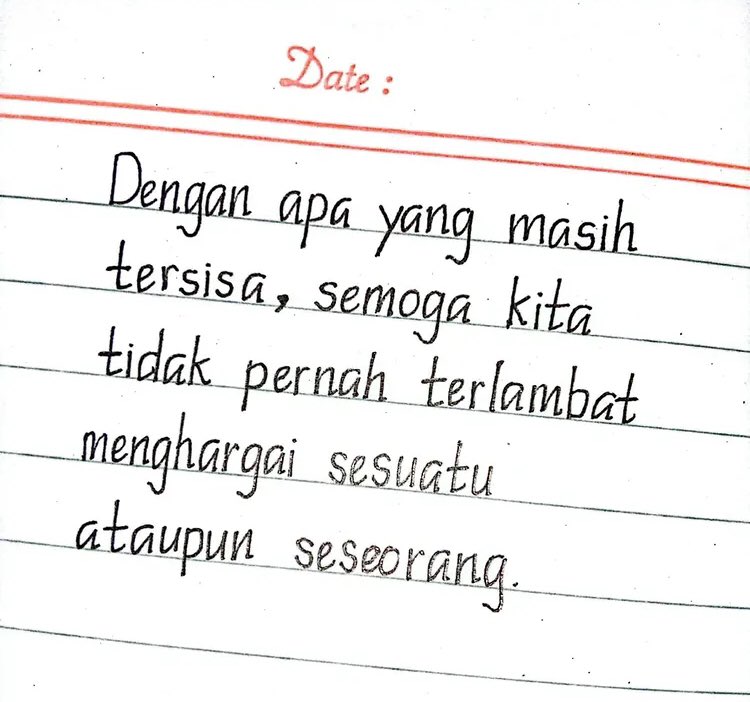 Date :
Dengan apa yang masih
tersisa, semoga kita
tidak pernah terlambat
menghargai sesuatu
ataupun seseorang.